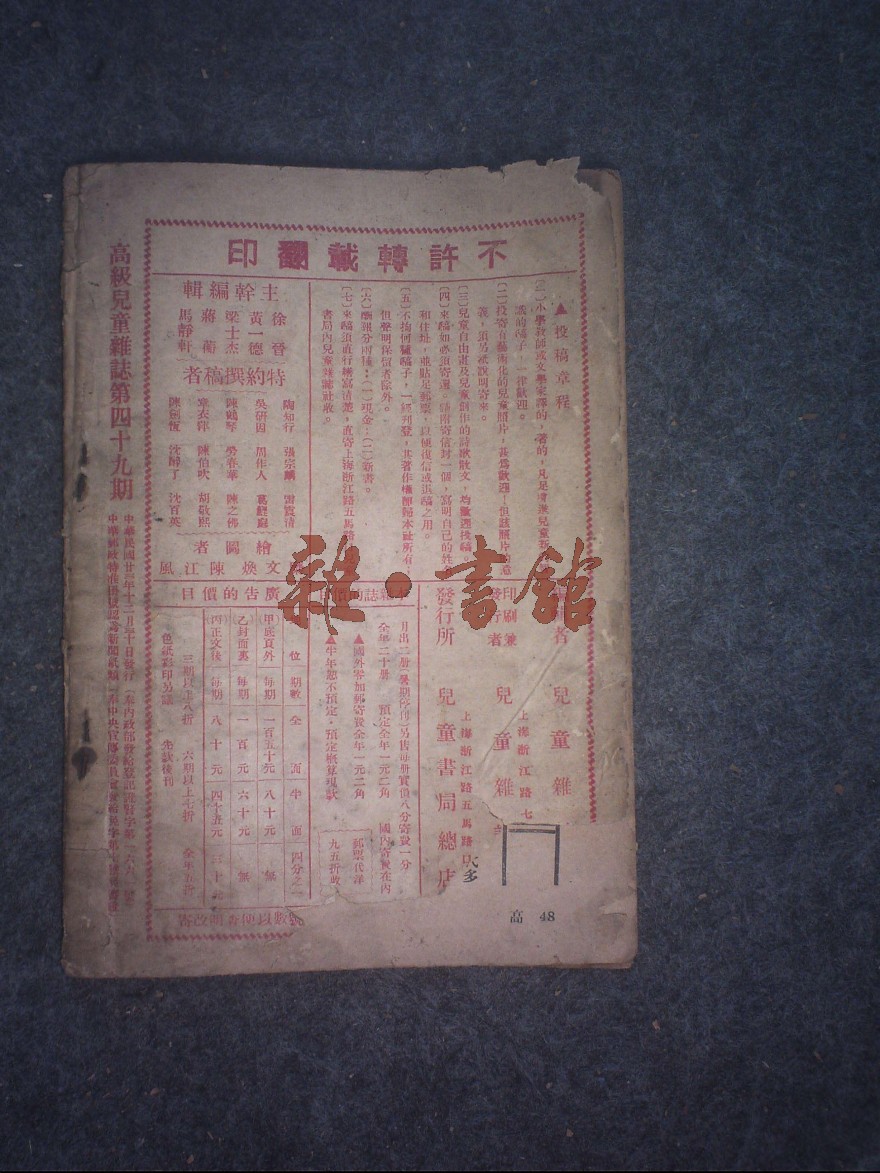 不許轉載翻印
▲投稿章程
〔一〕小學教師或文學家譯的，著的，凡是
的稿子，一律歡迎。
〔二〕投寄有藝術化的兒童照片，甚爲歡迎！但該照片的意
義，須另紙說明寄來。
〔三〕兒童自由畫及兒童創作的詩歌散文，均歡迎投稿。
〔四〕來稿如必須寄還，請附寄信封一個，寫明自己的姓
和住址，並貼足郵票，以便復信或退稿之用。
〔五〕不拘何種稿子，一經刊登，其著作權即歸本社所有；
但聲明保留者除外。
〔六〕酬報分兩種：（一）現金；（二）新書。
〔七〕來稿須直行繕寫清楚，直寄上海浙江路五馬路
書局內兒童雜誌社收。
主幹編輯
徐晉
黃一德
梁士杰
蔣蘅
馬靜軒
特約撰稿者
陶知行 張宗麟 雷震清
吳研因 周作人 葛鯉庭
陳鶴琴 勞春華 陳之佛
章衣萍 陳伯吹 胡敬熙
陳劍恆 沈靜了 沈百英
繪圖者
文煥 陳江風
者 兒童雜
上海浙江路七
印刷兼
發行者 兒童雜
上海浙江路五馬路口
發行所 兒童書局總店
月出二册（暑期停刊）另售每册實價八分寄費一分
全年二十册 預定全年一元二角 國內寄費在內
▲國外零加郵寄費全年一元二角
▲半年恕不預定，預定概算現款
郵票代洋
九五折收
廣告的價目
位 期數 全面 半面 四分之一
甲底頁外 每期 一百五十元 八十元 無
乙封面裏 每期 一百元 六十元 無
丙正文後 每期 八十元 四十五元 三十元
三期以上八折 六期以上七折 全年五折
色紙彩印另議 先試後刊
高級兒童雜誌第四十九期
中華民國廿三年十二月十日發行
高 48
雜·書館